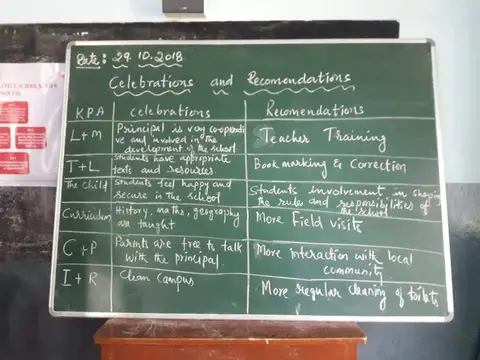 Date: 29.10.2018
Celebrations and Recomendations
KPA
Celebrations
Recomendations
L+M
Principal is very co-operati
ve and involved in the
development of the school
Teacher Training
T+L
Students have appropriate
texts and resources.
Book marking & Correction
The Child
Students feel happy and
secure in the school
Students involvement in shaping
the rules and responsibilities of
the school
Curriculum
History, maths, geography
are taught
More Field visits
C+P
Parents are free to talk
with the principal.
More interaction with local
community.
I+R
Clean Campus
More regular cleaning of